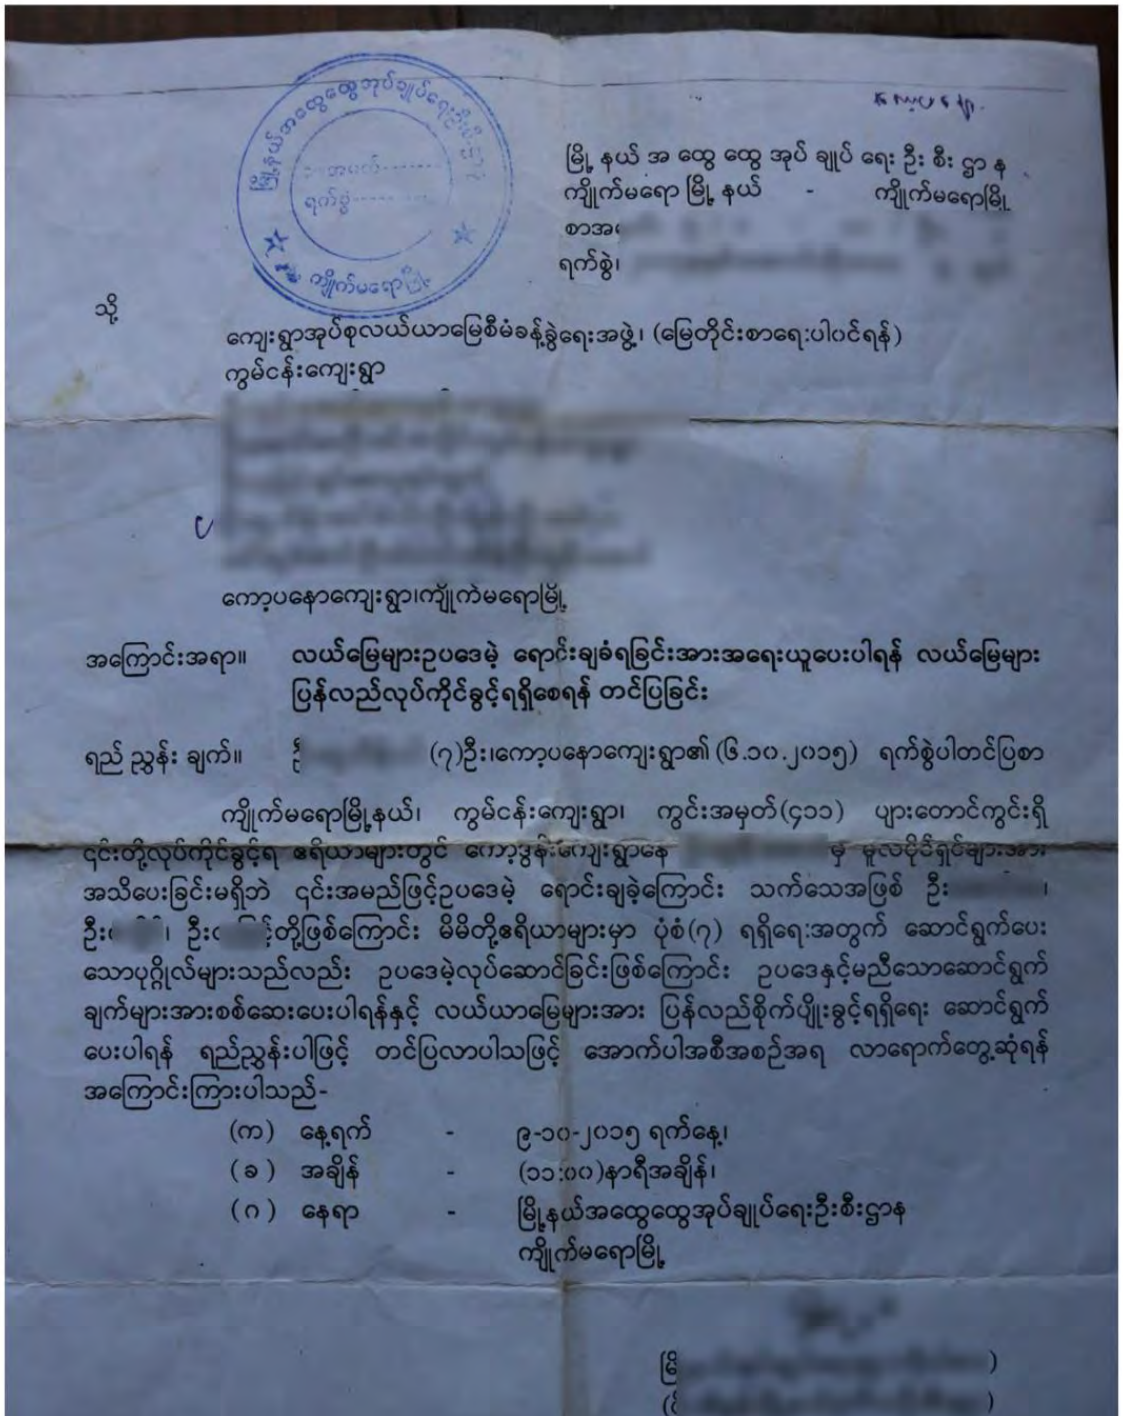 မြို့နယ်အထွေထွေအုပ်ချုပ်ရေးဦးစီးဌာန
ရက်စွဲ
ကျိုက်မရောမြို့
မြို့ နယ် အ ထွေ ထွေ အုပ် ချုပ် ရေး ဦး စီး ဌာ န
ကျိုက်မရော မြို့ နယ် - ကျိုက်မရောမြို့
ရက်စွဲ၊
သို့
ကျေးရွာအုပ်စုလယ်ယာမြေစီမံခန့်ခွဲရေးအဖွဲ့၊ (မြေတိုင်းစာရေးပါဝင်ရန်)
ကွမ်ငန်းကျေးရွာ
ကော့ပနောကျေးရွာ၊ကျိုက်မရောမြို့
အကြောင်းအရာ။ လယ်မြေများဥပဒေမဲ့ ရောင်းချခံရခြင်းအားအရေးယူပေးပါရန် လယ်မြေများ
ပြန်လည်လုပ်ကိုင်ခွင့်ရရှိစေရန် တင်ပြခြင်း
ရည် ညွှန်း ချက်။ (၇)ဦး၊ကော့ပနောကျေးရွာ၏ (၆.၁၀.၂၀၁၅) ရက်စွဲပါတင်ပြစာ
ကျိုက်မရောမြို့နယ်၊ ကွမ်ငန်းကျေးရွာ၊ ကွင်းအမှတ်(၄၁၁) ပျားတောင်ကွင်းရှိ
၎င်းတို့လုပ်ကိုင်ခွင့်ရ ဧရိယာများတွင် ကော့ဒွန်းကျေးရွာနေ မှ မူလပိုင်ရှင်များအား
အသိပေးခြင်းမရှိဘဲ ၎င်းအမည်ဖြင့်ဥပဒေမဲ့ ရောင်းချခဲ့ကြောင်း သက်သေအဖြစ် ဦး ၊
ဦး ၊ ဦး တို့ဖြစ်ကြောင်း မိမိတို့ဧရိယာများမှာ ပုံစံ(၇) ရရှိရေးအတွက် ဆောင်ရွက်ပေး
သောပုဂ္ဂိုလ်များသည်လည်း ဥပဒေမဲ့လုပ်ဆောင်ခြင်းဖြစ်ကြောင်း ဥပဒေနှင့်မညီသောဆောင်ရွက်
ချက်များအားစစ်ဆေးပေးပါရန်နှင့် လယ်ယာမြေများအား ပြန်လည်စိုက်ပျိုးခွင့်ရရှိရေး ဆောင်ရွက်
ပေးပါရန် ရည်ညွှန်းပါဖြင့် တင်ပြလာပါသဖြင့် အောက်ပါအစီအစဉ်အရ လာရောက်တွေ့ဆုံရန်
အကြောင်းကြားပါသည်-
(က) နေ့ရက် - ၉-၁၀-၂၀၁၅ ရက်နေ့၊
(ခ) အချိန် - (၁၁:၀၀)နာရီအချိန်၊
(ဂ) နေရာ - မြို့နယ်အထွေထွေအုပ်ချုပ်ရေးဦးစီးဌာန
ကျိုက်မရောမြို့